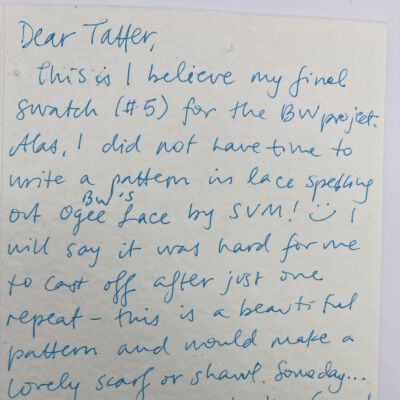 Dear Tatter,
This is I believe my final
swatch (#5) for the BW project.
Alas, I did not have time to
write a pattern in lace spelling
out BW's Ogee Lace by SVM! I
will say it was hard for me
to cast off after just one
repeat - this is a beautiful
pattern and would make a
lovely scarf or shawl. Someday...